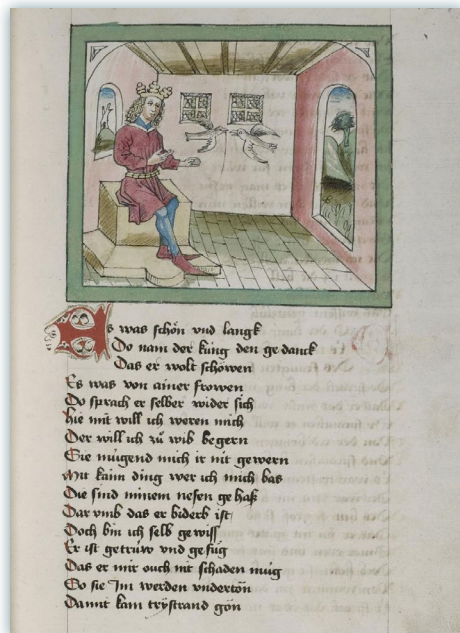 Es was schön vnd langk
Do nam der kúng den gedanck
Das er wolt schöwen
Es was von ainer frowen
Do sprach er selber wider sich
hie mit will ich weren mich
Der will ich zů wib begern
Sie múgend mich ir nit gewern
Mit kainn ding wer ich mich bas
Die sind minem nefen gehaß
Dar vmb das er biderb ist
Doch bin ich selb gewiss
Er ist getrúw vnd gefúg
Das er mir ouch nit schaden múg
So sie Im werden vndertön
Damit kam trÿstrand gön